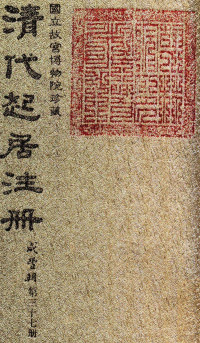 國立故宮博物院珍藏
清代起居注冊
咸豐朝 第三十七冊